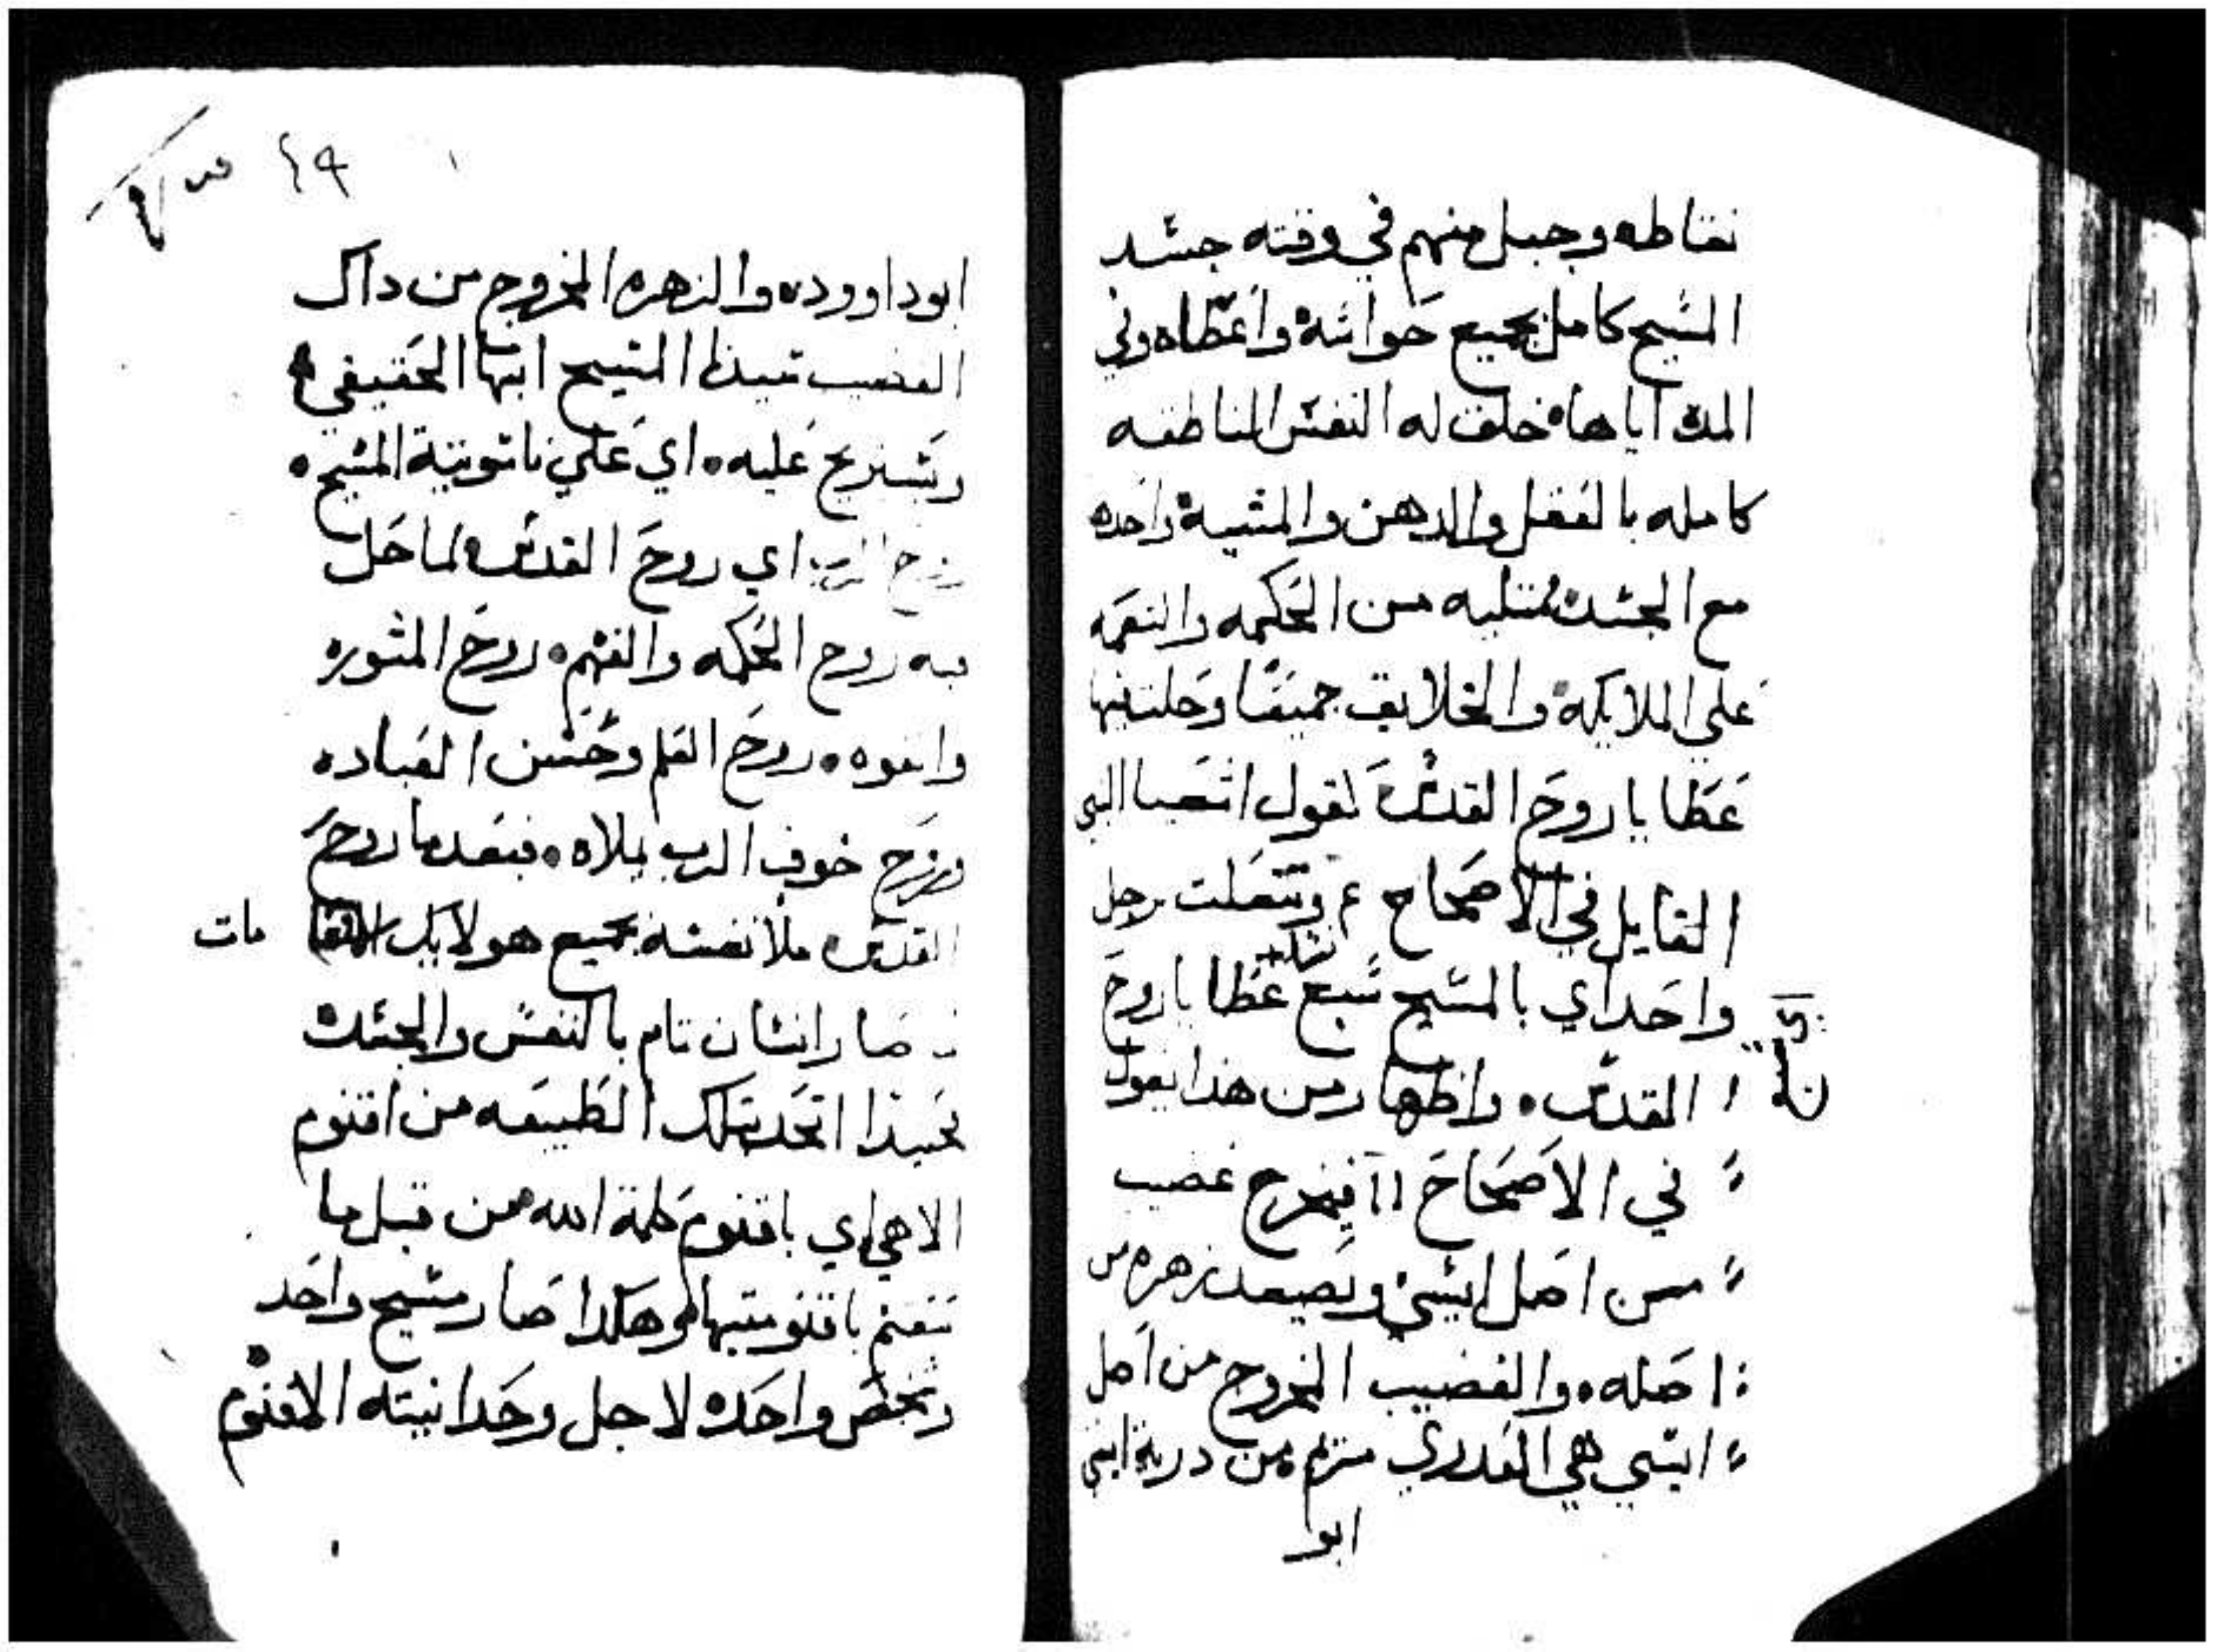 نقاطه وجبل منهم في وقته جسد
المسيح كامل بجميع حواسه واعطاه وفي
المده اياها خلق له النفس الناطقه
كامله بالعقل والدهن والمشية واحده
مع الجسد ممتليه من الحكمه والنعمه
علي الملايكه والخلايق جميعا وحلت فيها
عطايا روح القدس لقول اشعيا النبي
القايل في الاصحاح ع وتتعلت برجل
واحد اي بالمسيح سبع عطايا روح
القدس واظهار من هذا يقول
في الاصحاح ١١ فيخرج غضيب
من اصل ايسي ويصعد زهره من
اصله والقضيب المخروج من اصل
ايسي هي العدري مريم من درية ايسي
ابو
٤٩
ابو داوود والزهره المخروج من داك
القضيب تعبدا المسيح ابنها الحقيقي
ويستريح عليه اي علي ناسوتية المسيح
روح الرب اي روح القدس ولما حل
به روح الحكمه والفهم روح المشوره
والقوه روح العلم وحسن العباده
وروح خوف الرب يملاه فبعد ما روح
القدس ملا نفسه بجميع هولايك
مات
صار انسان تام بالنفس والجسد
نحيندا اتحد بتلك الطبيعه من اقنوم
الاهي اي باقنوم كلمة الله من قبل ما
تنقنم باقنوميتها وهكدا صار مسيح واحد
وشخص واحده لاجل وحدانيته الاقنوم